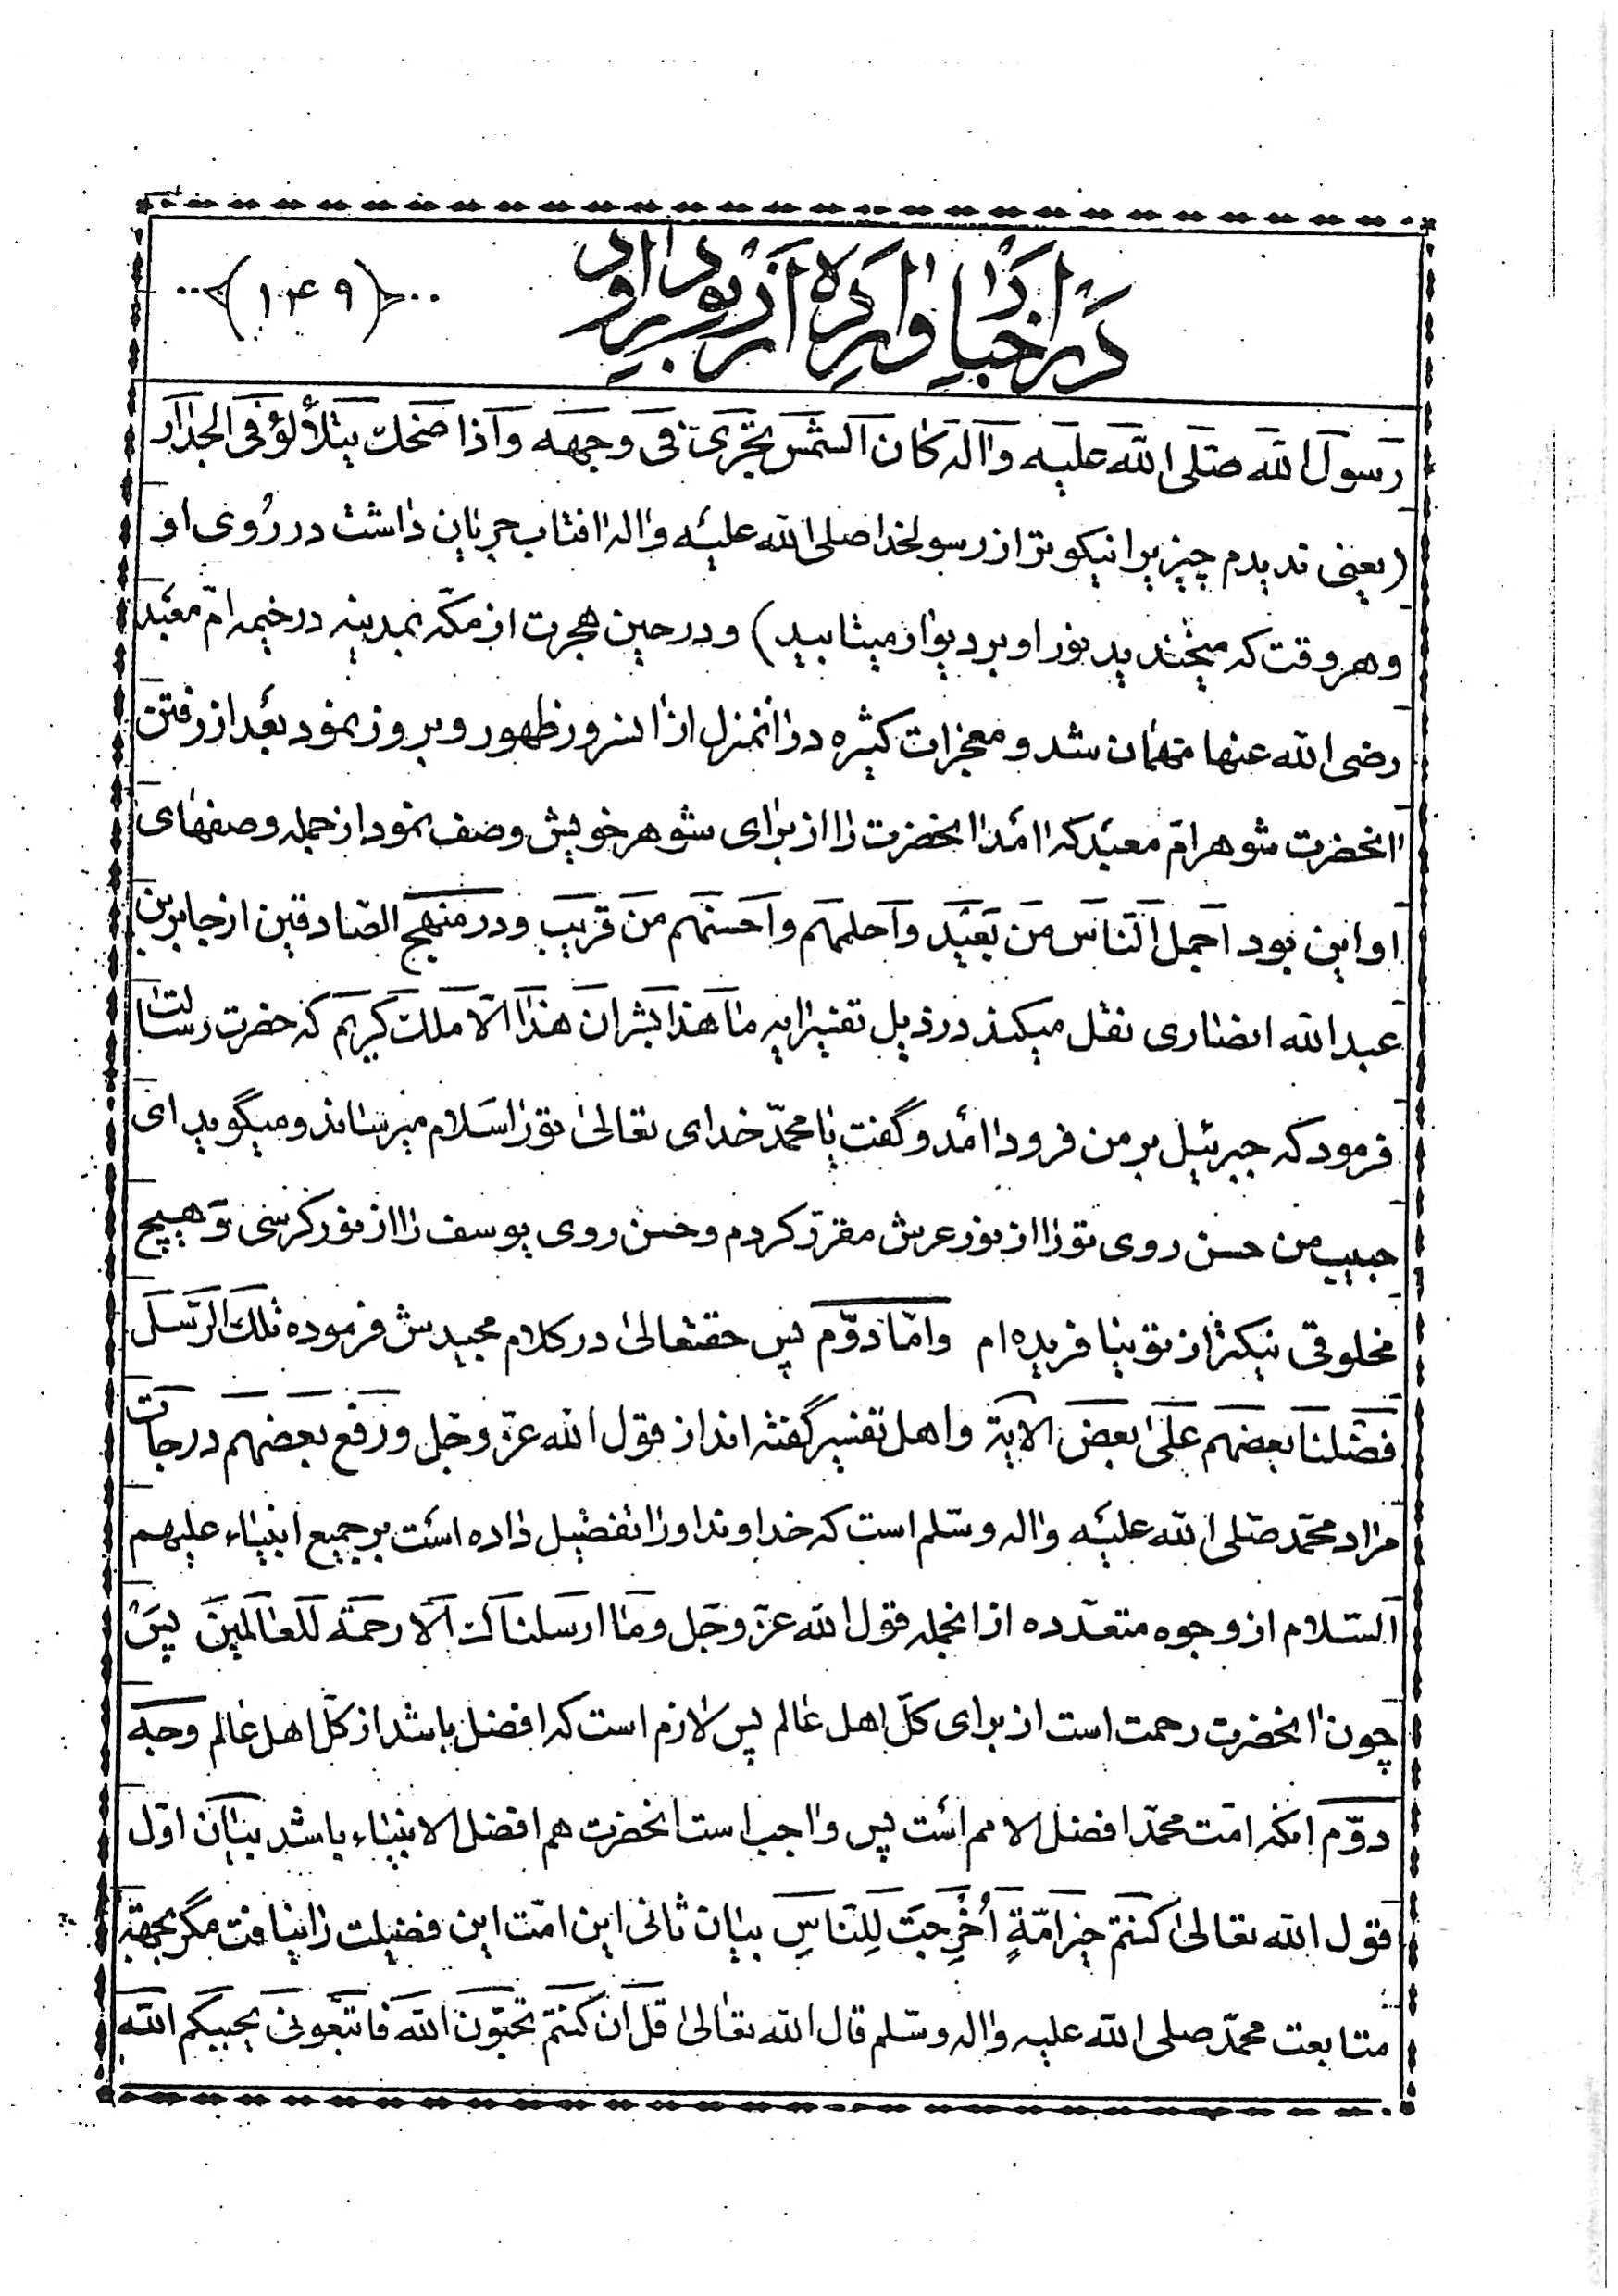 در اخبار وارده از زبور داود
﴿۱۴۹﴾
رسول الله صلی الله علیه واله کان الشمس تجری فی وجهه واذا ضحك یتلألؤ فی الجدار
(یعنی ندیدم چیزیرا نیکوتر از رسولخدا صلی الله علیه واله افتاب جریان داشت در روی او
وهروقت که میخندید نور او بر دیوار میتابید) ودرحین هجرت از مکه بمدینه درخیمه امّ معبد
رضی الله عنها مهمان شد ومعجزات کثیره در انمنزل از انسرور ظهور وبروز نمود بعد از رفتن
انحضرت شوهر امّ معبد که امد انحضرت را از برای شوهر خویش وصف نمود از جمله وصفهای
او این بود اجمل الناس من بعید واحلمهم واحسنهم من قریب ودر منهج الصّادقین از جابر بن
عبدالله انصاری نقل میکند در ذیل تفسیر ایه ما هذا بشر ان هذا الّا ملك کریم که حضرت رسالت
فرمود که جبرئیل بر من فرود امد وگفت یا محمّد خدای تعالی تورا سلام میرساند ومیگوید ای
حبیب من حسن روی تورا از نور عرش مقرّر کردم وحسن روی یوسف را از نور کرسی و هیچ
مخلوقی نیکتر از تو نیافریده ام وامّا دوّم پس حقتعالی در کلام مجیدش فرموده تلك الرّسل
فضّلنا بعضهم علی بعض الایة واهل تفسیر گفته اند از قول الله عزّ وجل ورفع بعضهم درجات
مراد محمّد صلی الله علیه واله وسلم است که خداوند اورا تفضیل داده است بر جمیع انبیاء علیهم
السّلام از وجوه متعدّده از انجمله قول الله عزّ وجل وما ارسلناك الّا رحمة للعالمین پس
چون انحضرت رحمت است از برای کلّ اهل عالم پس لازم است که افضل باشد از کلّ اهل عالم وجه
دوّم انکه امّت محمّد افضل الامم است پس واجب است انحضرت هم افضل الانبیاء باشد بیان اوّل
قول الله تعالی کنتم خیر امّةٍ اُخرِجَت لِلنّاسِ بیان ثانی این امّت این فضیلت را نیافت مگر بجهة
متابعت محمّد صلی الله علیه واله وسلم قال الله تعالی قل ان کنتم تحبّون الله فاتّبعونی یحببکم الله